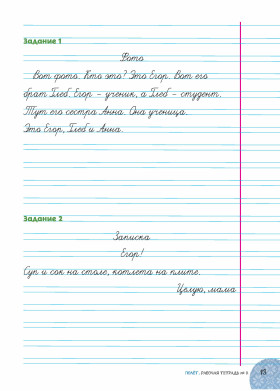 Задание 1
Фото
Вот фото. Кто это? Это Егор. Вот его
брат Глеб. Егор – ученик, а Глеб – студент.
Тут его сестра Анна. Она ученица.
Это Егор, Глеб и Анна.
Задание 2
Записка
Егор!
Суп и сок на столе, котлета на плите.
Целую, мама
РАБОЧАЯ ТЕТРАДЬ № 3
13